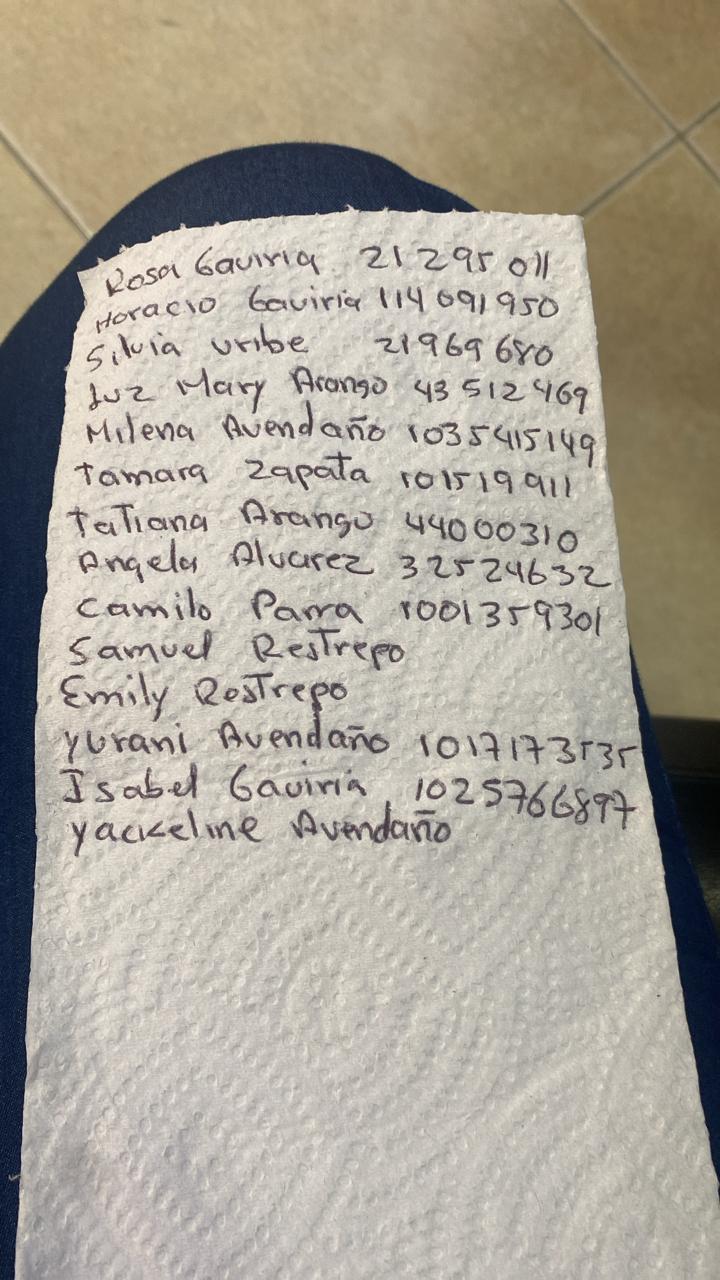 Rosa Gaviria 21295011
Horacio Gaviria 114091950
Silvia uribe 21969680
Luz Mary Arango 43512469
Milena Avendaño 1035415149
Tamara Zapata 101519911
Tatiana Arango 44000310
Angela Alvarez 32524632
Camilo Parra 1001359301
Samuel Restrepo
Emily Restrepo
Yurani Avendaño 1017173535
Isabel Gaviria 1025766897
Yackeline Avendaño